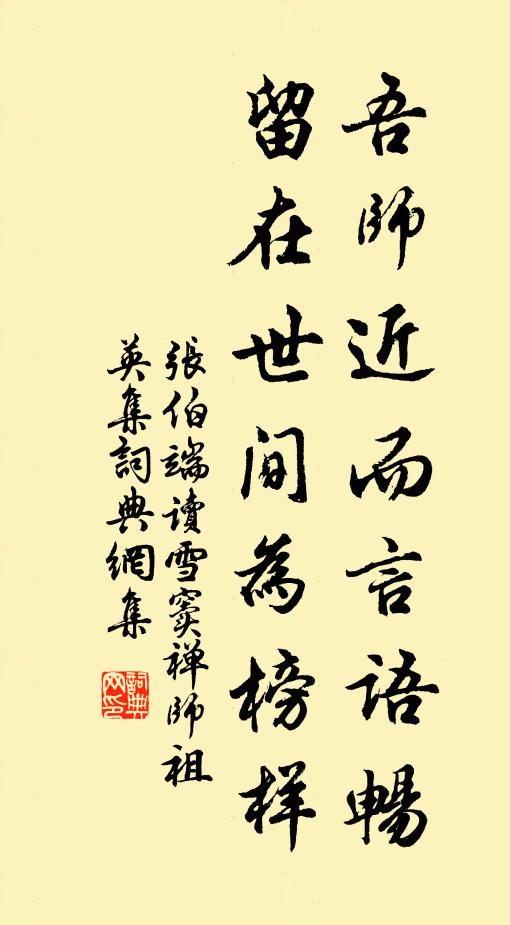 吾師近而言語暢
留在世間為榜樣
張伯端讀雪竇禪師祖
英集詞典網集
詞典網印